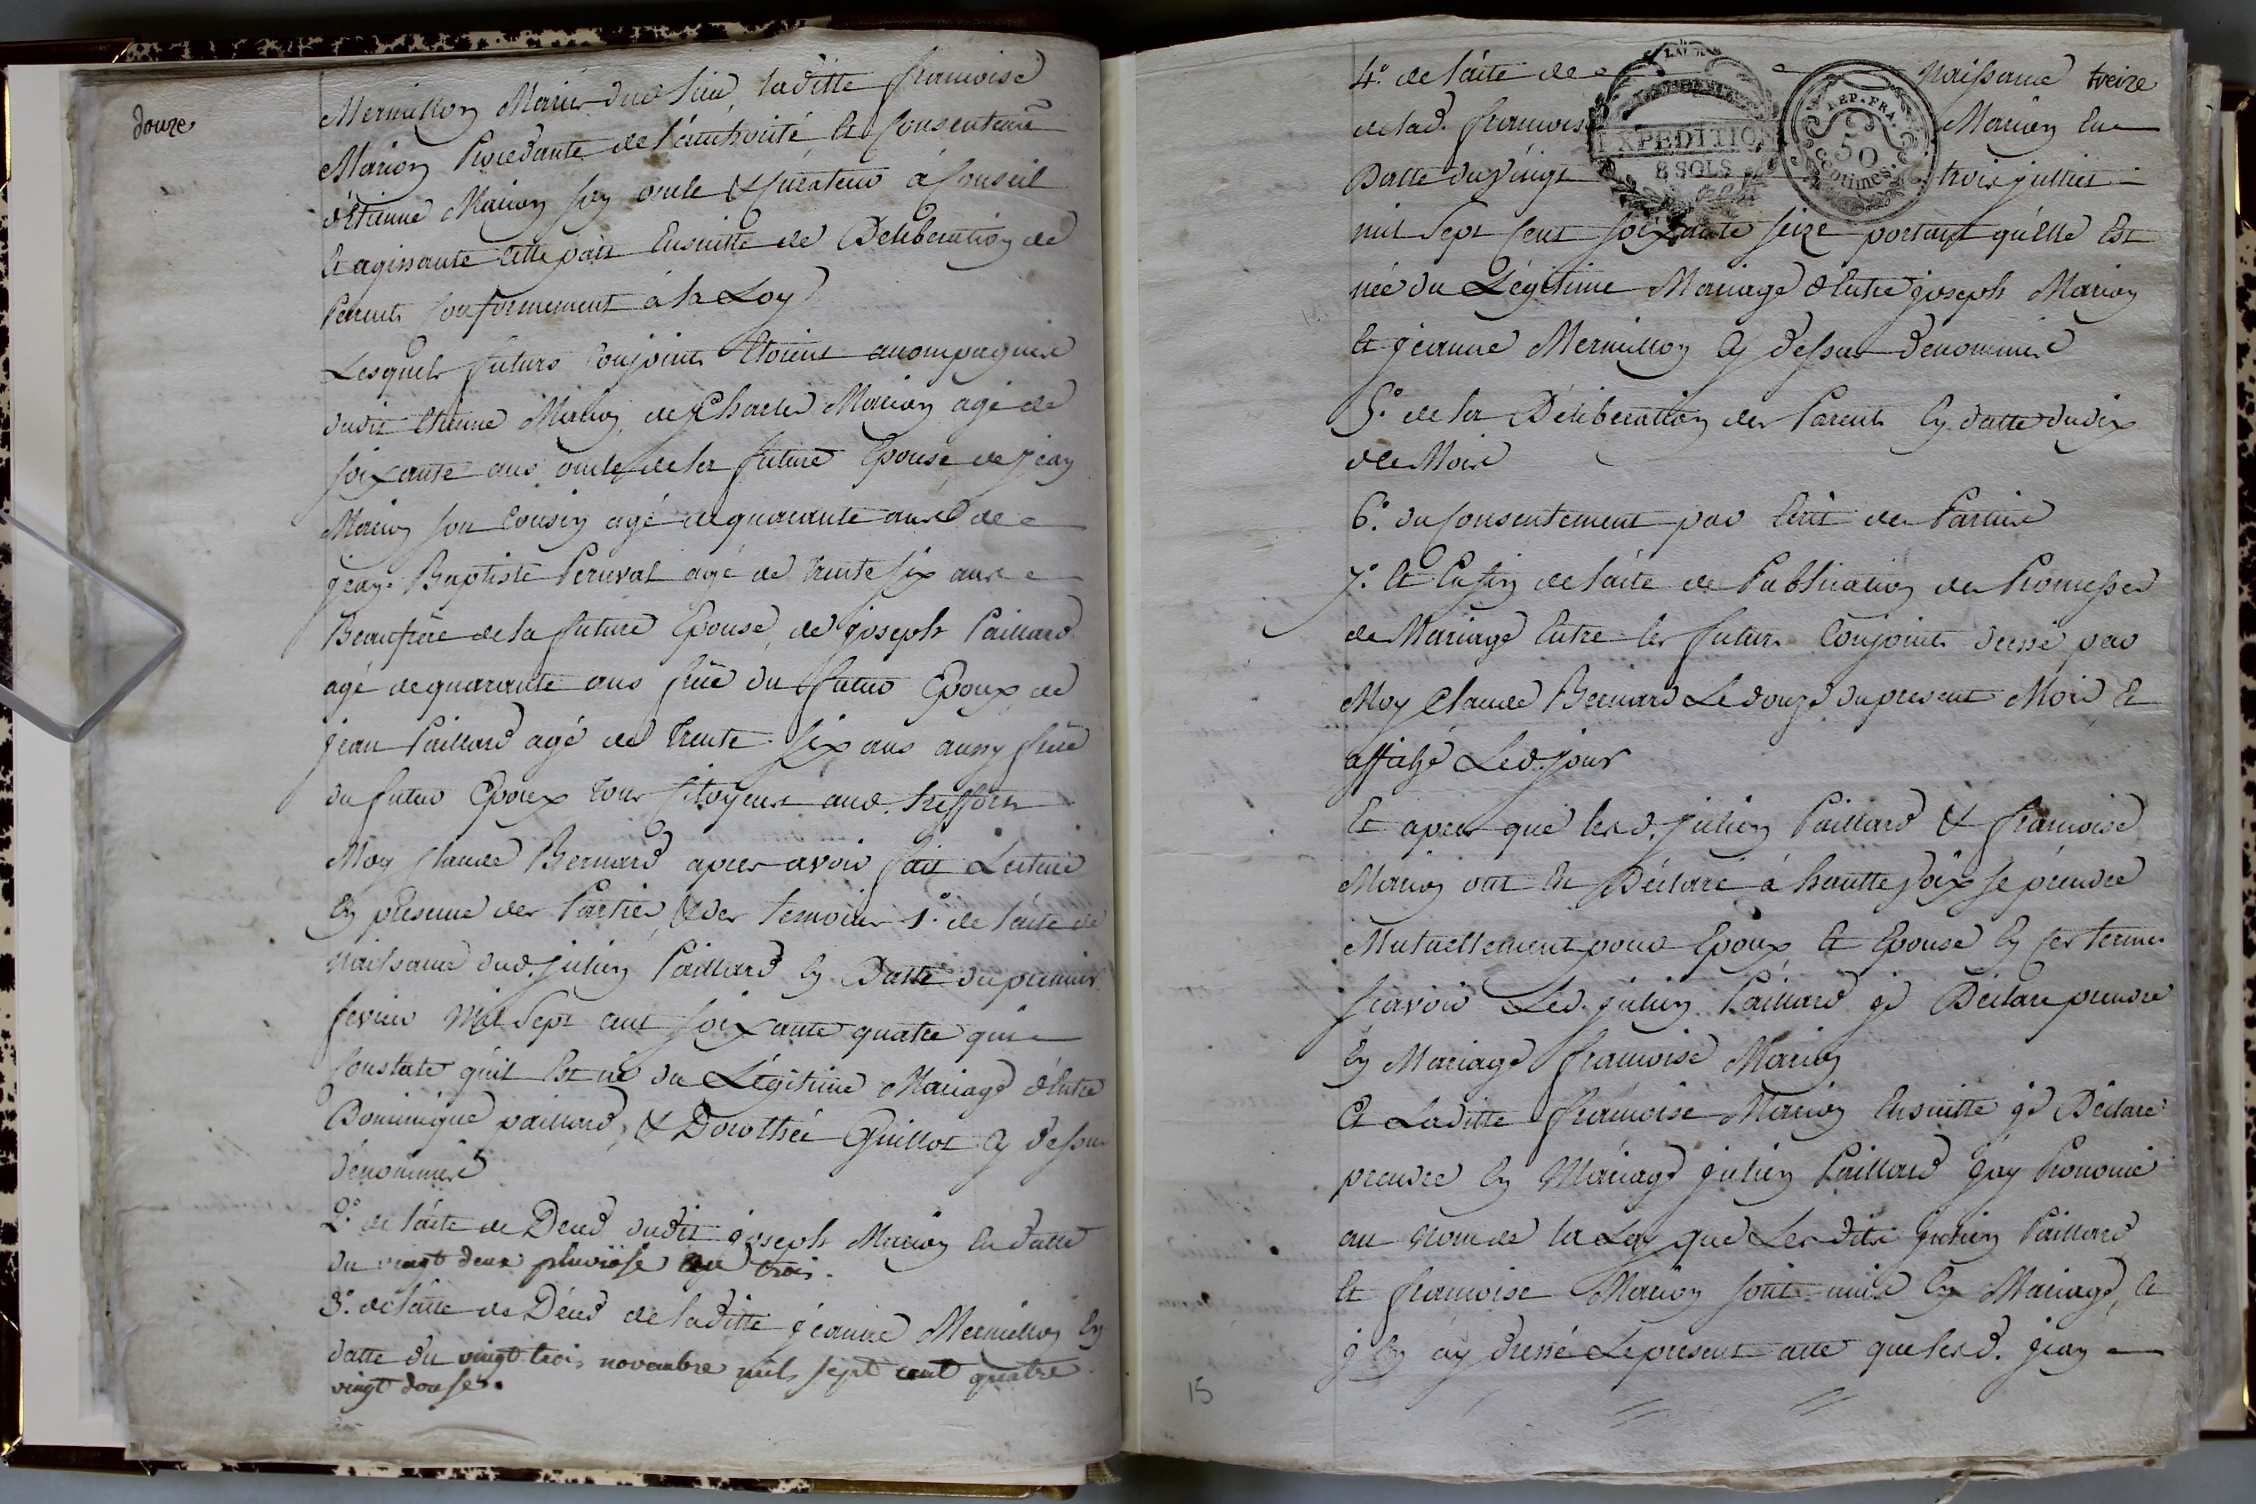 douze
Mermillon Mariés dud. lieu, laditte francoise
Marion Procedante de l'authorité et Consentemt
d'Etienne Marion son oncle & Curateur à Conseil
et agissante cette part Ensuitte de Deliberation de
Parents Conformement à la Loy
Lesquels futurs Conjoints Etoient accompagnés
dudit Etienne Marion, de Charles Marion agé de
soixante ans oncle de la future Epouse, de jean
Marion son Cousin agé de quarante ans de
jean Baptiste Perceval agé de trente six ans
Beaufrere de la future Epouse, de joseph Paillard
agé de quarante ans frere du futur Epoux, de
jean Paillard agé de trente six ans aussy frere
du futur Epoux tous Citoyens aud. treffort
Moy Claude Bernard apres avoir fait Lecture
En presence des Parties, & des temoins 1.° de l'acte de
Naissance dud. julien Paillard En Datte du premier
fevrier Mil Sept cent soixante quatre qui
Constate qu'il Est né du Légitime Mariage d'Entre
Dominique paillard, & Dorothée Guillot Cy dessus
dénommés
2.° de l'acte de Deced dudit joseph Marion En datte
du vingt deux pluviôse an trois.
3.° de l'acte de Déced de laditte jeanne Mermillon En
datte du vingt trois novembre mil sept cent quatre
vingt douse.
4.° de l'acte de Naissance treize
de lad. francoise Marion En
Datte du vingt trois juillet
mil Sept Cent soixante seize portant qu'elle Est
née du Légitime Mariage d'Entre joseph Marion
et jeanne Mermillon Cy dessus denommés
5.° de la Déliberation des Parents En datte du dix
de Mois
6.° du Consentement par Ecrit des Parties
7.° Et Enfin de l'acte de Publication des Promesses
de Mariage Entre les futurs Conjoints dressé par
Moy Claude Bernard Le douze du present Mois et
affiché Led. jour
Et apres que lesd. julien Paillard & francoise
Marion ont Eu Déclaré à hautte voix se prendre
Mutuellement pour Epoux et Epouse En ces termes
scavoir Led. julien Paillard je Déclare prendre
En Mariage francoise Marion
Et Laditte francoise Marion Ensuitte je Déclare
prendre En Mariage julien Paillard j'ay Prononcé
au Nom de la Loy que Lesdits julien Paillard
et francoise Marion sont unis En Mariage, et
j'En ay dressé Le present acte que lesd. jean
EXPEDITION
8 SOLS
REP. FRA.
50
centimes
15